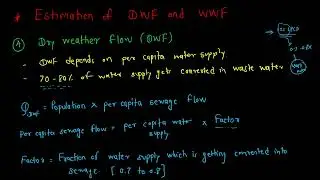 * Estimation of DWF and WWF
A Dry weather flow (DWF)
- DWF depends on per capita water supply
- 70-80% of water supply gets converted in waste water
Q DWF = Population x per capita sewage flow
per capita sewage flow = per capita water supply x Factor
Factor = Fraction of water supply which is getting converted into sewage. [0.7 to 0.8]